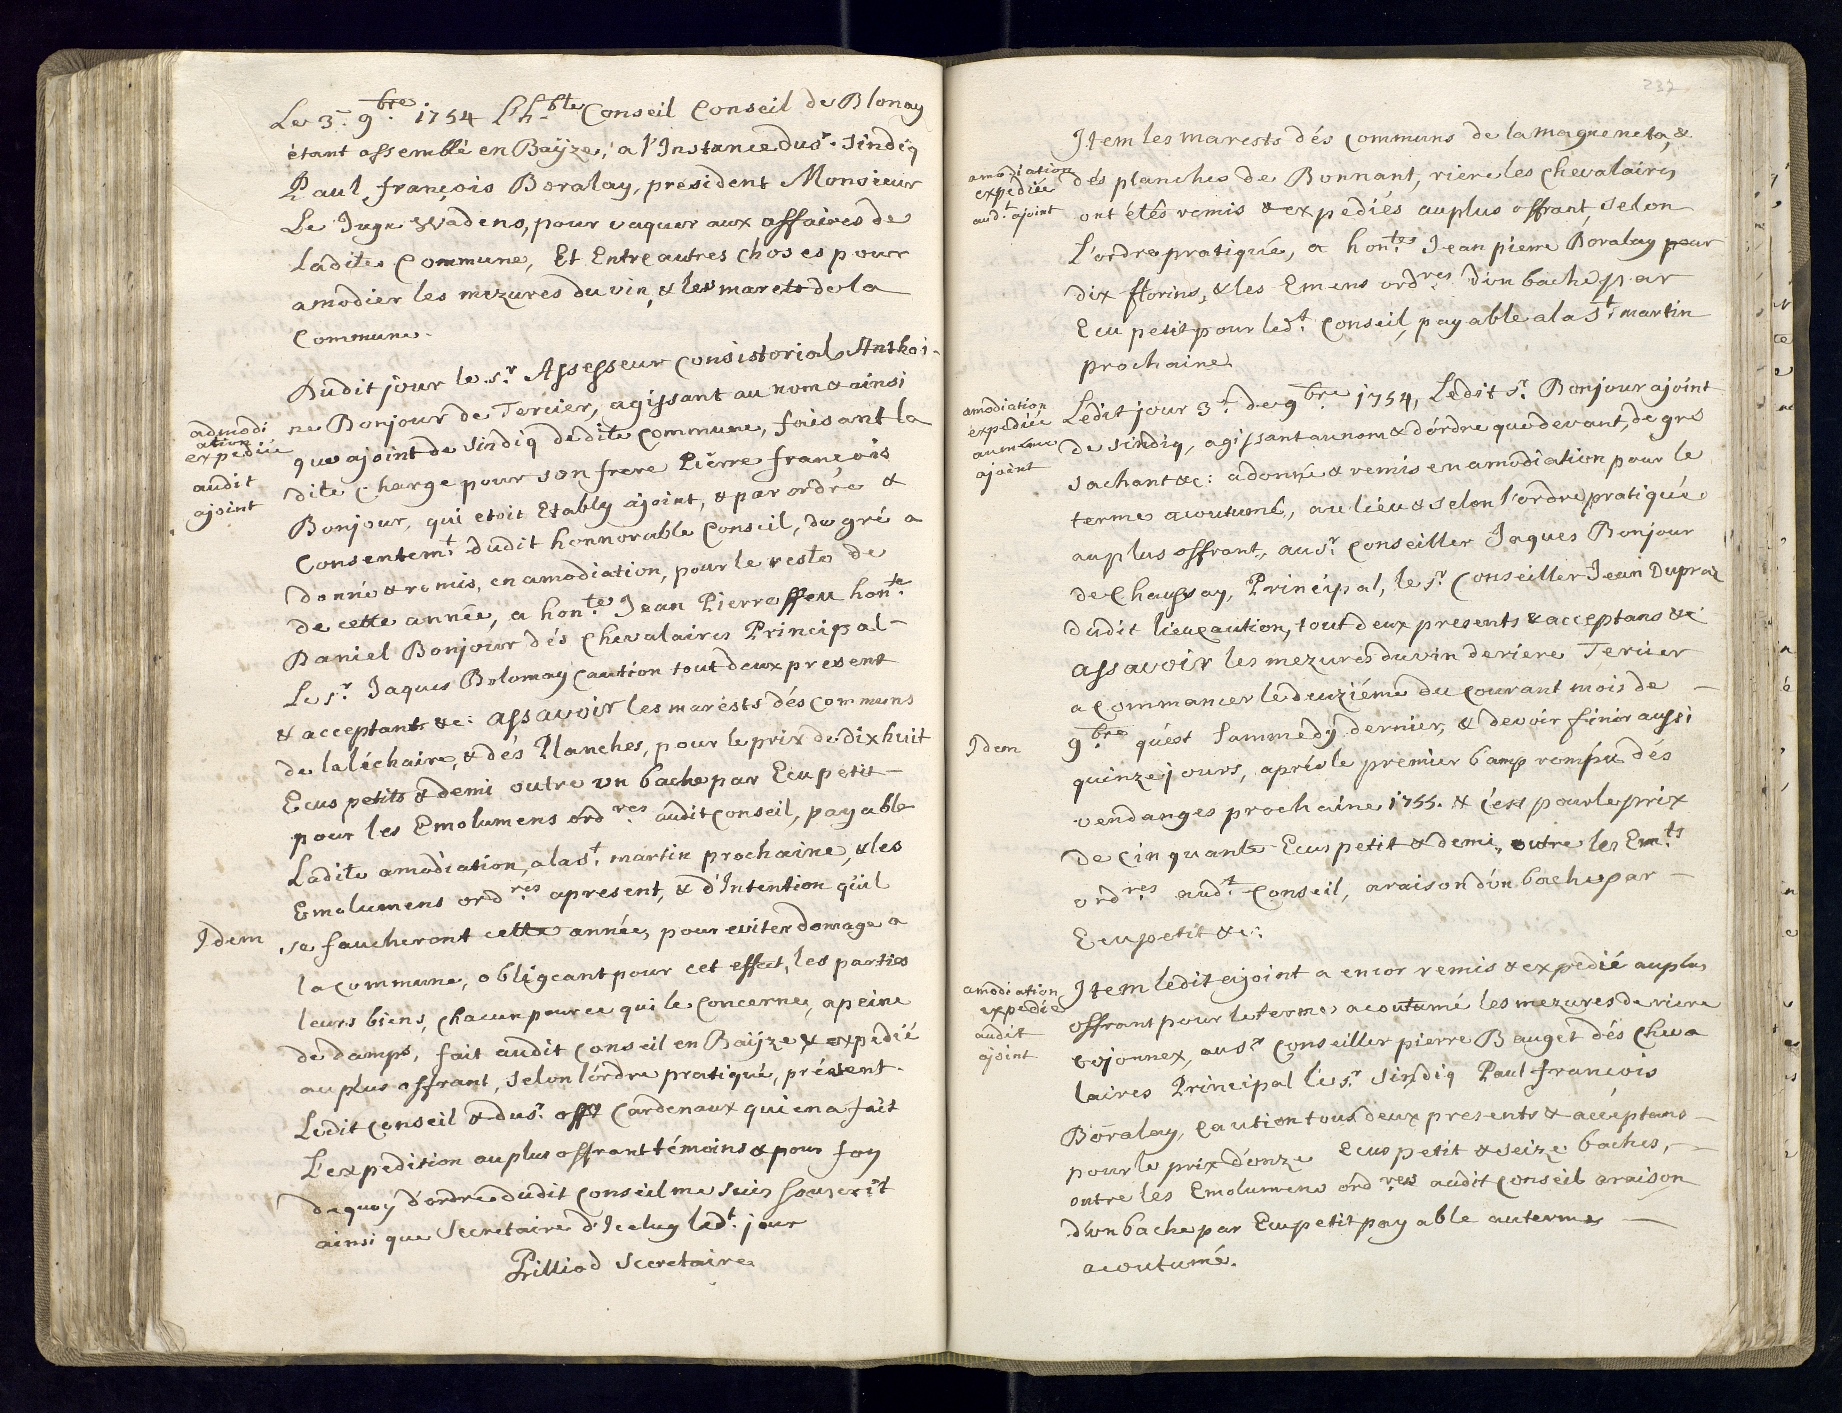 Le 3.e 9.bre 1754 L'h.ble Conseil Conseil de Blonay
étant assemblé en Baÿze, a l'Instance du s.r Sindiq
Paul françois Boralay, président Monsieur
Le Juge De Wadens, pour vaquer aux affaires de
Ladite Commune, Et Entre autres choses pour
amodier les mezures du vin, & les marets de la
Commune.
Dudit jour le s.r Assesseur Consistorial Anthoi-
ne Bonjour de Tercier, agissant au nom & ainsi
que ajoint de Sindiq dedite Commune, faisant la
dite Charge pour son frere Pierre françois
Bonjour, qui etoit Etably ajoint, & par ordré &
Consentem.t dudit honnorable Conseil, de gré a
donné & remis, en amodiation, pour le reste de
de cette année, a hon.te Jean Pierre ffeu hon.te
Daniel Bonjour dés Chevalaires Principal-
Le s.r Jaques Bolomay Caution tout deux present
& acceptant &c: assavoir les marésts dés Communs
de la léchaire, & dés Planches, pour le prix de dix huit
Ecus petits & demi outre un bache par Ecu petit-
pour les Emolumens ord.res audit Conseil, payable
Ladite amodiation, a la s.t martin prochaine, & les
Emolumens ord.res apresent, & d'Intention qu'il
se faucheront cette année, pour eviter domage a
la Commune, obligeant pour cet effect, les parties
leurs biens, Chacun pour ce qui le Concerne, apeine
de damps, fait audit Conseil en Baÿze & expedié
au plus offrant, selon l'órdre pratiqué, présent-
Ledit Conseil & du s.r off Cardenaux qui en a fait
L'expedition au plus offrant témoins & pour foy
dequoy d'ordre dudit Conseil me suis souscrit
ainsi que Secretaire d'Iceluy led.t jour
Pilliod Secretaire
admodi
ation
expediée
audit
ajoint
Idem
237
Item les marests dés Communs de la magueneta, &
dés planches de Bonnant, riere les Chevalaires
ont étés remis & expediés au plus offrant, selon
L'ordre pratiqué, a hon.te Jean pierre Boralay pour
dix florins, & les Emens ord.res d'un bache par
Ecu petit pour led.t Conseil, payable a la S.t martin
prochaine
Ledit jour 3.e de 9.bre 1754, Ledit s.r Bonjour ajoint
de Sindiq, agissant au nom & d'órdre que devant, de gré
sachant &c: a donné & remis en amodiation pour le
terme acoutumé, au liéu & selon l'ordre pratiqué
au plus offrant, au s.r Conseiller Jaques Bonjour
de Chaussay, Principal, le s.r Conseiller Jean Dupraz
dudit lieu Caution, tout deux presents & acceptans &c
assavoir les mezures du vin de riere Tercier
a Commancer lé deuziéme du Courant mois de -
9.bre qu'est Sammedÿ dernier, & devoir finir aussi
quinze jours, aprés le premier bamp rompu dés
vendanges prochaine 1755. & c'est pour le prix
de Cinquante Ecus petit & demi, outre les Em.ts
ord.res aud.t Conseil, a raison d'un bache par -
Ecu petit &c:
Item ledit ajoint a encor remis & expedié au plus
offrant pour le terme acoutumé les mezures de riere
Cojonnex, au s.r Conseiller pierre Bauget dés Cheva
laires Principal le s.r Sindiq Paul françois
Boralay, Caution tous deux presents & acceptans -
pour le prix d'onze Ecus petit & seize baches, -
outre les Emolumens ord.res audit Conseil a raison
d'un bache par Ecu petit payable au terme -
acoutumé.
amodiation
expédiée
aud.t ajoint
amodiation
expediée
au même
ajoint
Idem
amodiation
expediée
audit
ajoint